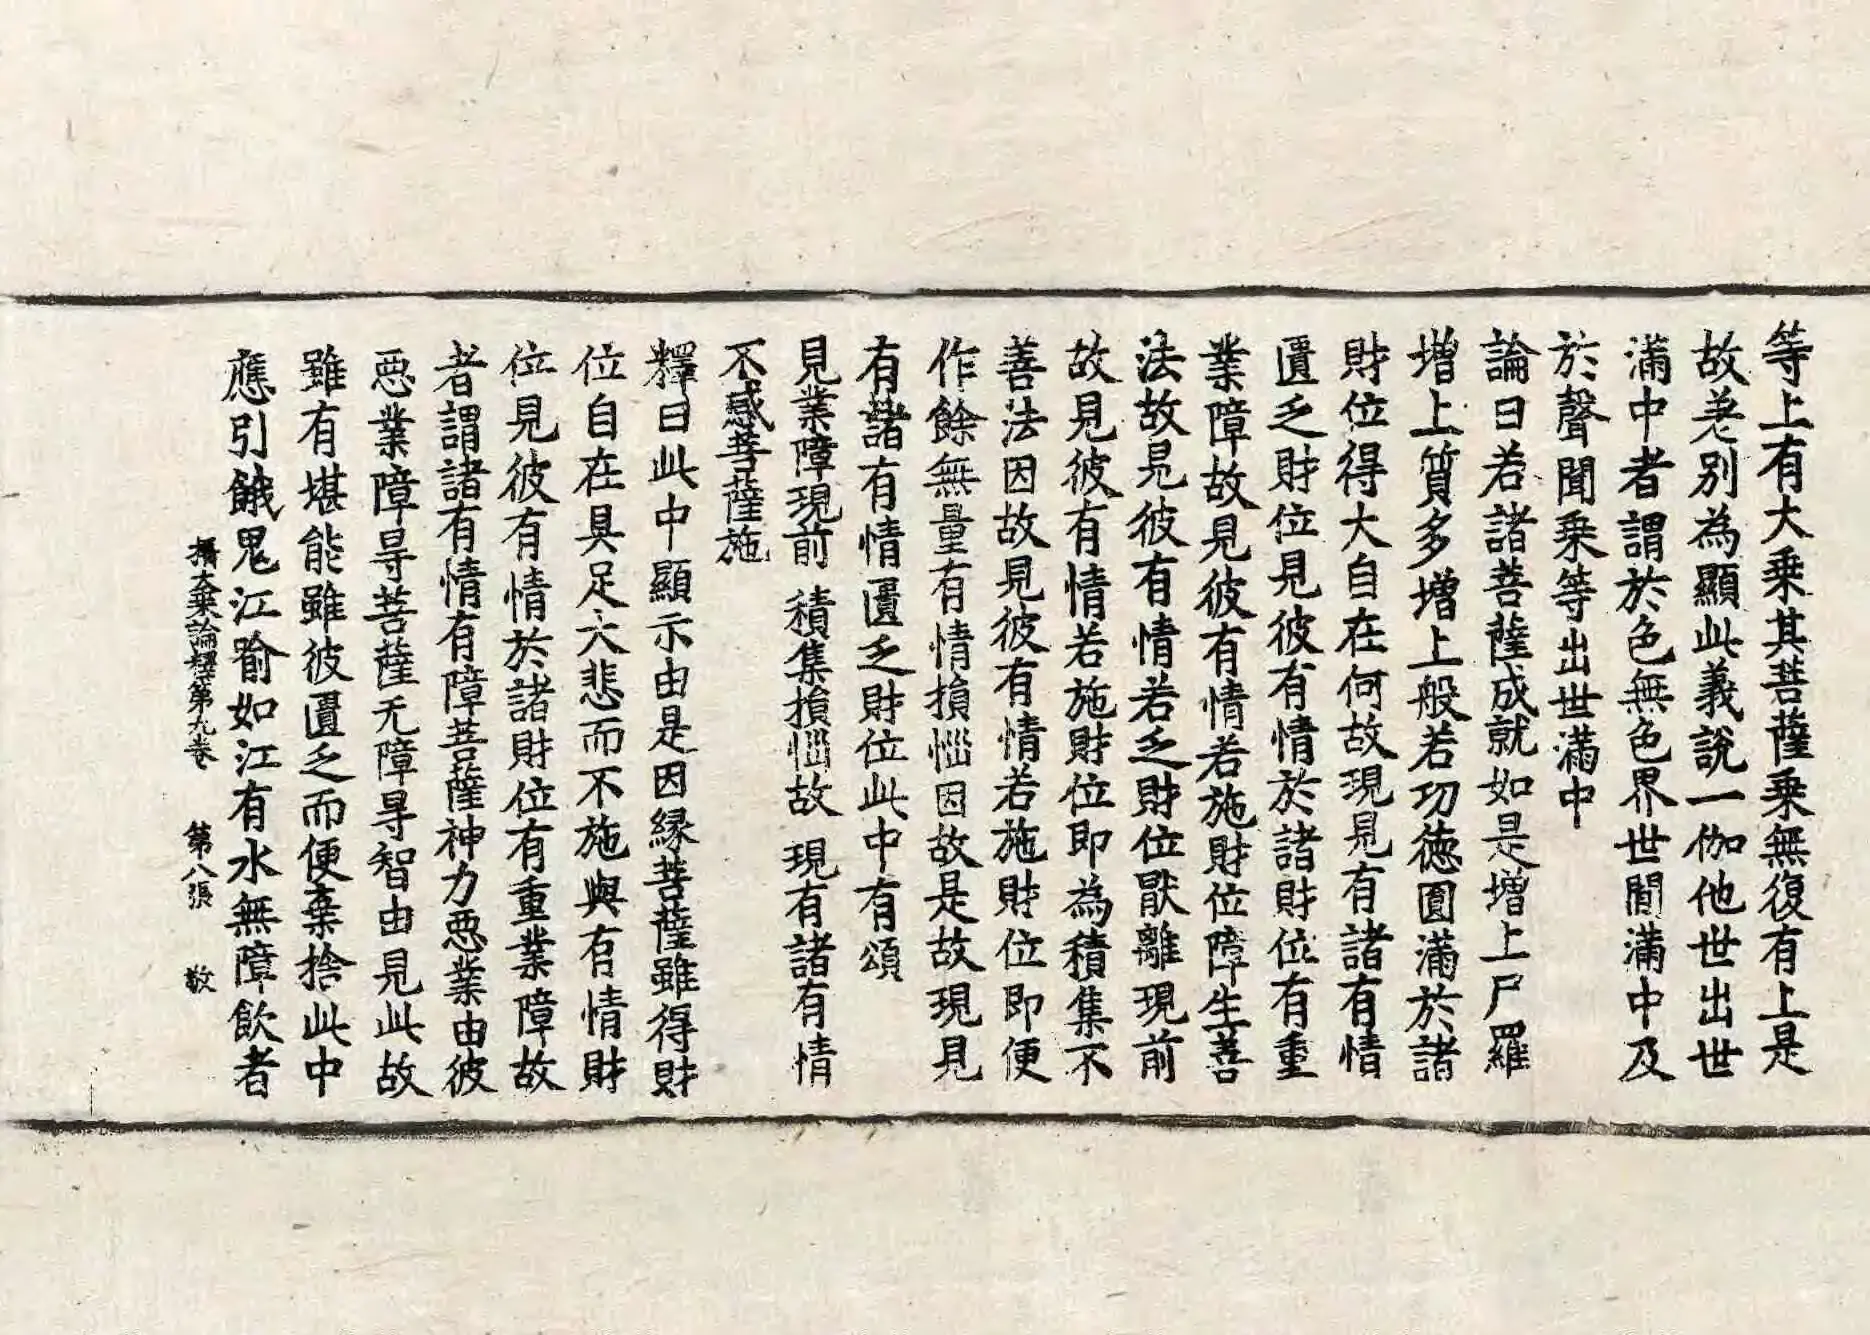 等上有大乗其菩薩乗無復有上是
故差別為顯此義說一伽他世出世
滿中者謂於色無色界世間滿中及
於聲聞乗等出世滿中
論曰若諸菩薩成就如是增上尸羅
增上質多增上般若功德圓滿於諸
財位得大自在何故現見有諸有情
匱乏財位見彼有情於諸財位有重
業障故見彼有情若施財位障生善
法故見彼有情若乏財位猒離現前
故見彼有情若施財位即為積集不
善法因故見彼有情若施財位即便
作餘無量有情損惱因故是故現見
有諸有情匱乏財位此中有頌
見業障現前 積集損惱故 現有諸有情
不感菩薩施
釋曰此中顯示由是因緣菩薩雖得財
位自在具足大悲而不施與有情財
位見彼有情於諸財位有重業障故
者謂諸有情有障菩薩神力惡業由彼
惡業障㝵菩薩无障㝵智由見此故
雖有堪能雖彼匱乏而便棄捨此中
應引餓鬼江喻如江有水無障飲者
攝大乗論釋第九卷 第八張 敬